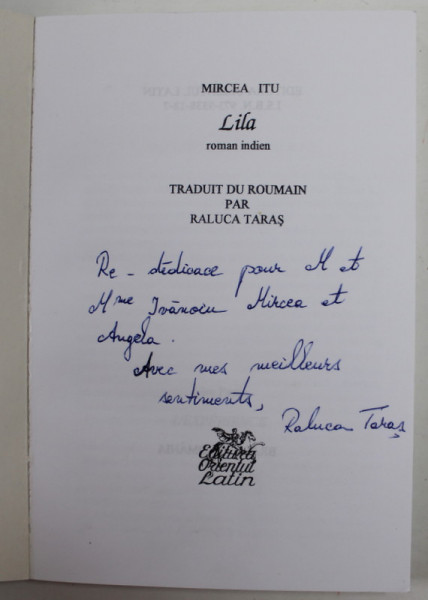 MIRCEA ITU
Lila
roman indien
TRADUIT DU ROUMAIN
PAR
RALUCA TARAŞ
Re-dédicace pour M et
Mme Ivănoiu Mircea et
Angela.
Avec mes meilleurs
sentiments,
Raluca Taraş
Editura
Orientul
Latin